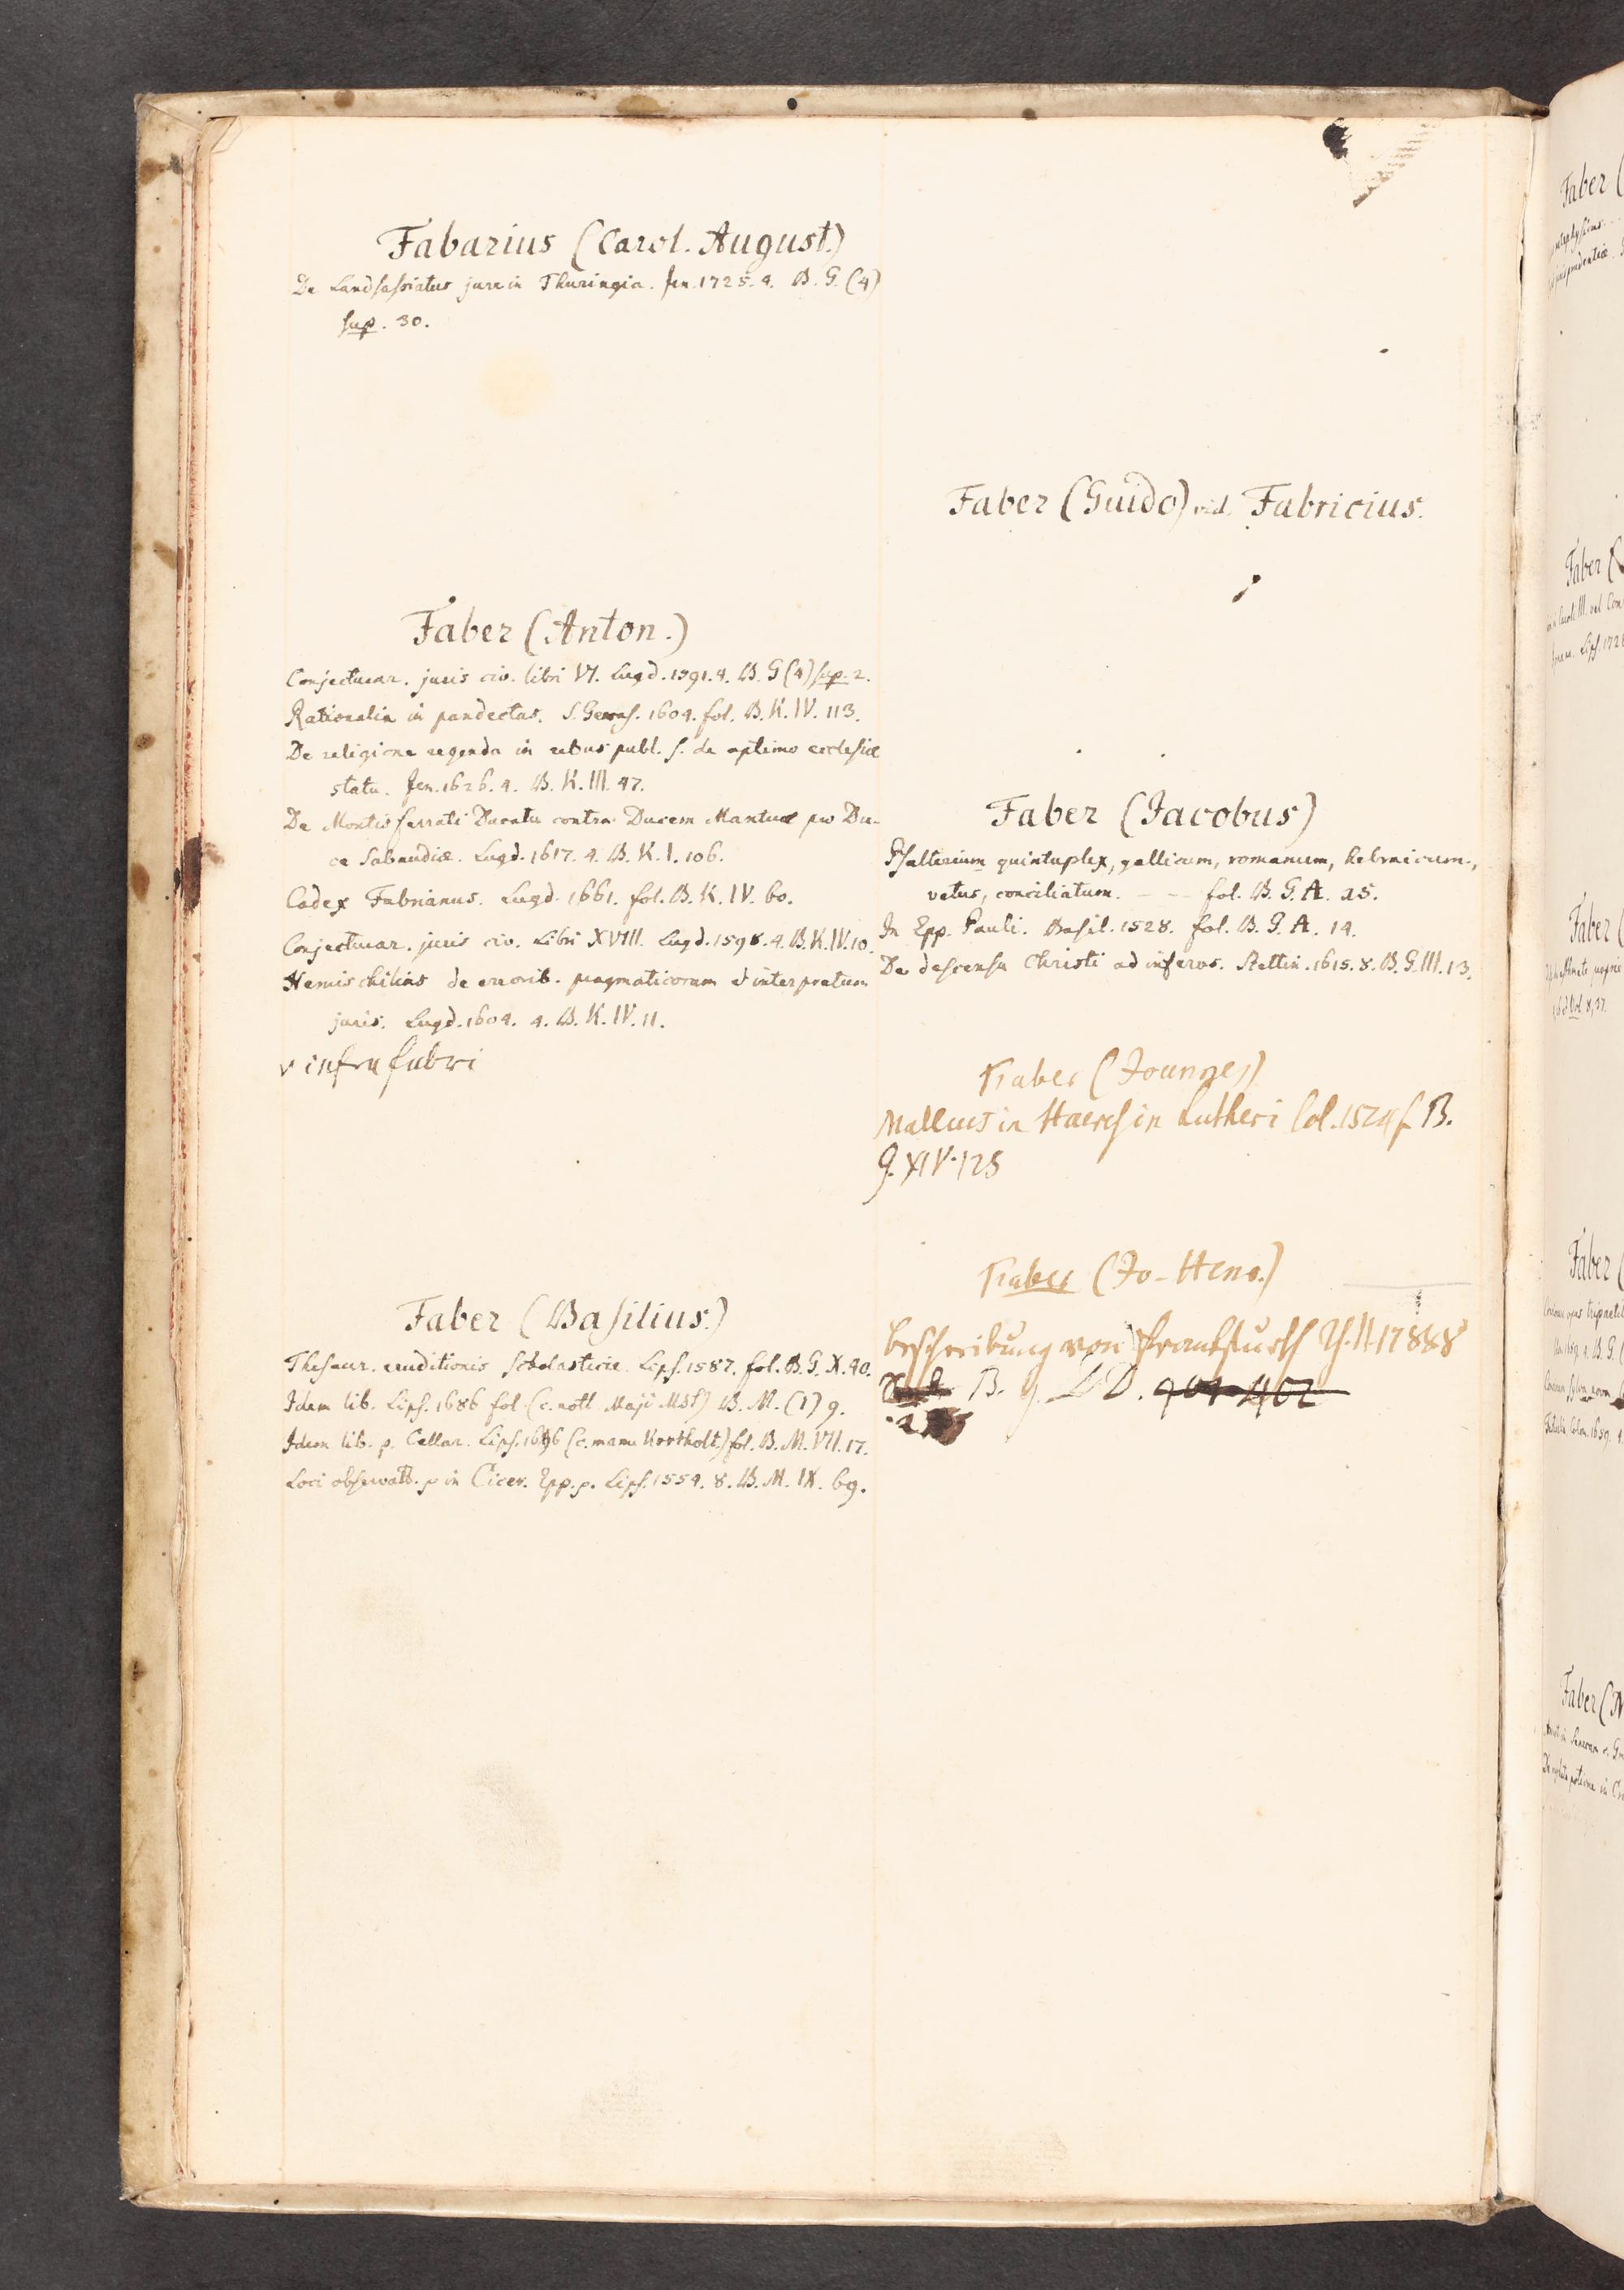 Fabarius (Carol. August.)
De Landsassiatus jure in Thuringia. Jen. 1725. 4. B. G. (4)
sup. 30.
Faber (Anton.)
Conjecturar. juris civ. libri VI. Lugd. 1591. 4. B. G (4) sup. 2.
Rationalia in pandectas. S. Gervas. 1604. fol. B. K. IV. 113.
De religione regenda in rebus publ. s. de optimo ecclesiæ
statu. Jen. 1626. 4. B. K. III. 47.
De Montisferrati Ducatu contra Ducem Mantuæ pro Du-
ce Sabaudiæ. Lugd. 1617. 4. B. K. I. 106.
Codex Fabrianus. Lugd. 1661. fol. B. K. IV. 60.
Conjecturar. juris civ. Libri XVIII. Lugd. 1598. 4. B. K. IV. 10.
Hemischilias de errorib. pragmaticorum et interpretum
juris. Lugd. 1604. 4. B. K. IV. 11.
v infra fabri
Faber (Basilius.)
Thesaur. eruditionis scholasticæ. Lips. 1587. fol. B. G. X. 40.
Idem lib. Lips. 1686 fol (c. nott. Maji MSt) B. M. (1) 9.
Idem lib. p. Cellar. Lips. 1696 (c. manu Kortholt.) fol. B. M. VII. 17.
Loci observatt. p in Cicer. Epp. p. Lips. 1554. 8. B. M. IX. 69.
Faber (Guido) vid. Fabricius.
Faber (Jacobus)
Psalterium quintuplex, gallicum, romanum, hebraicum,
vetus, conciliatum. - - - fol. B. G. A. 25.
In Epp. Pauli. Basil. 1528. fol. B. G. A. 14.
De descensu Christi ad inferos. Stettin. 1615. 8. B. G. III. 13.
Faber (Joannes)
Malleus in Haeresin Lutheri Col. 1524 f. B.
G. XIV. 128
Faber (Jo- Henr.)
Beschreibung von Frankfurth 1788 8
B. G. DD. 401-402